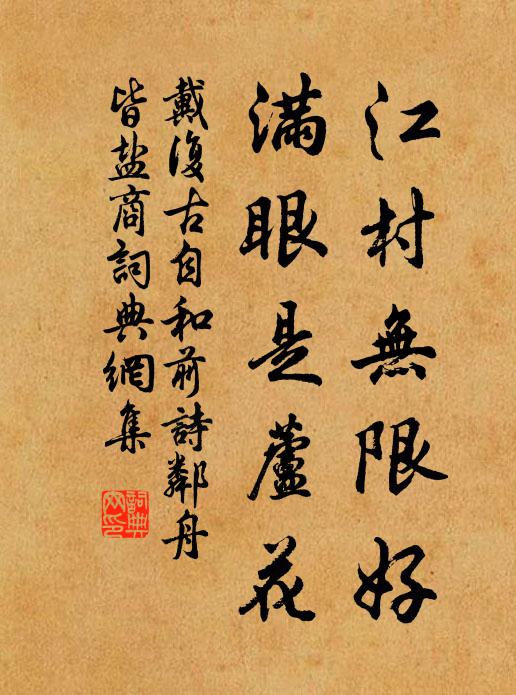 江村無限好
滿眼是蘆花
戴復古自和前詩鄰舟
皆盐商詞典網集
詞典網印